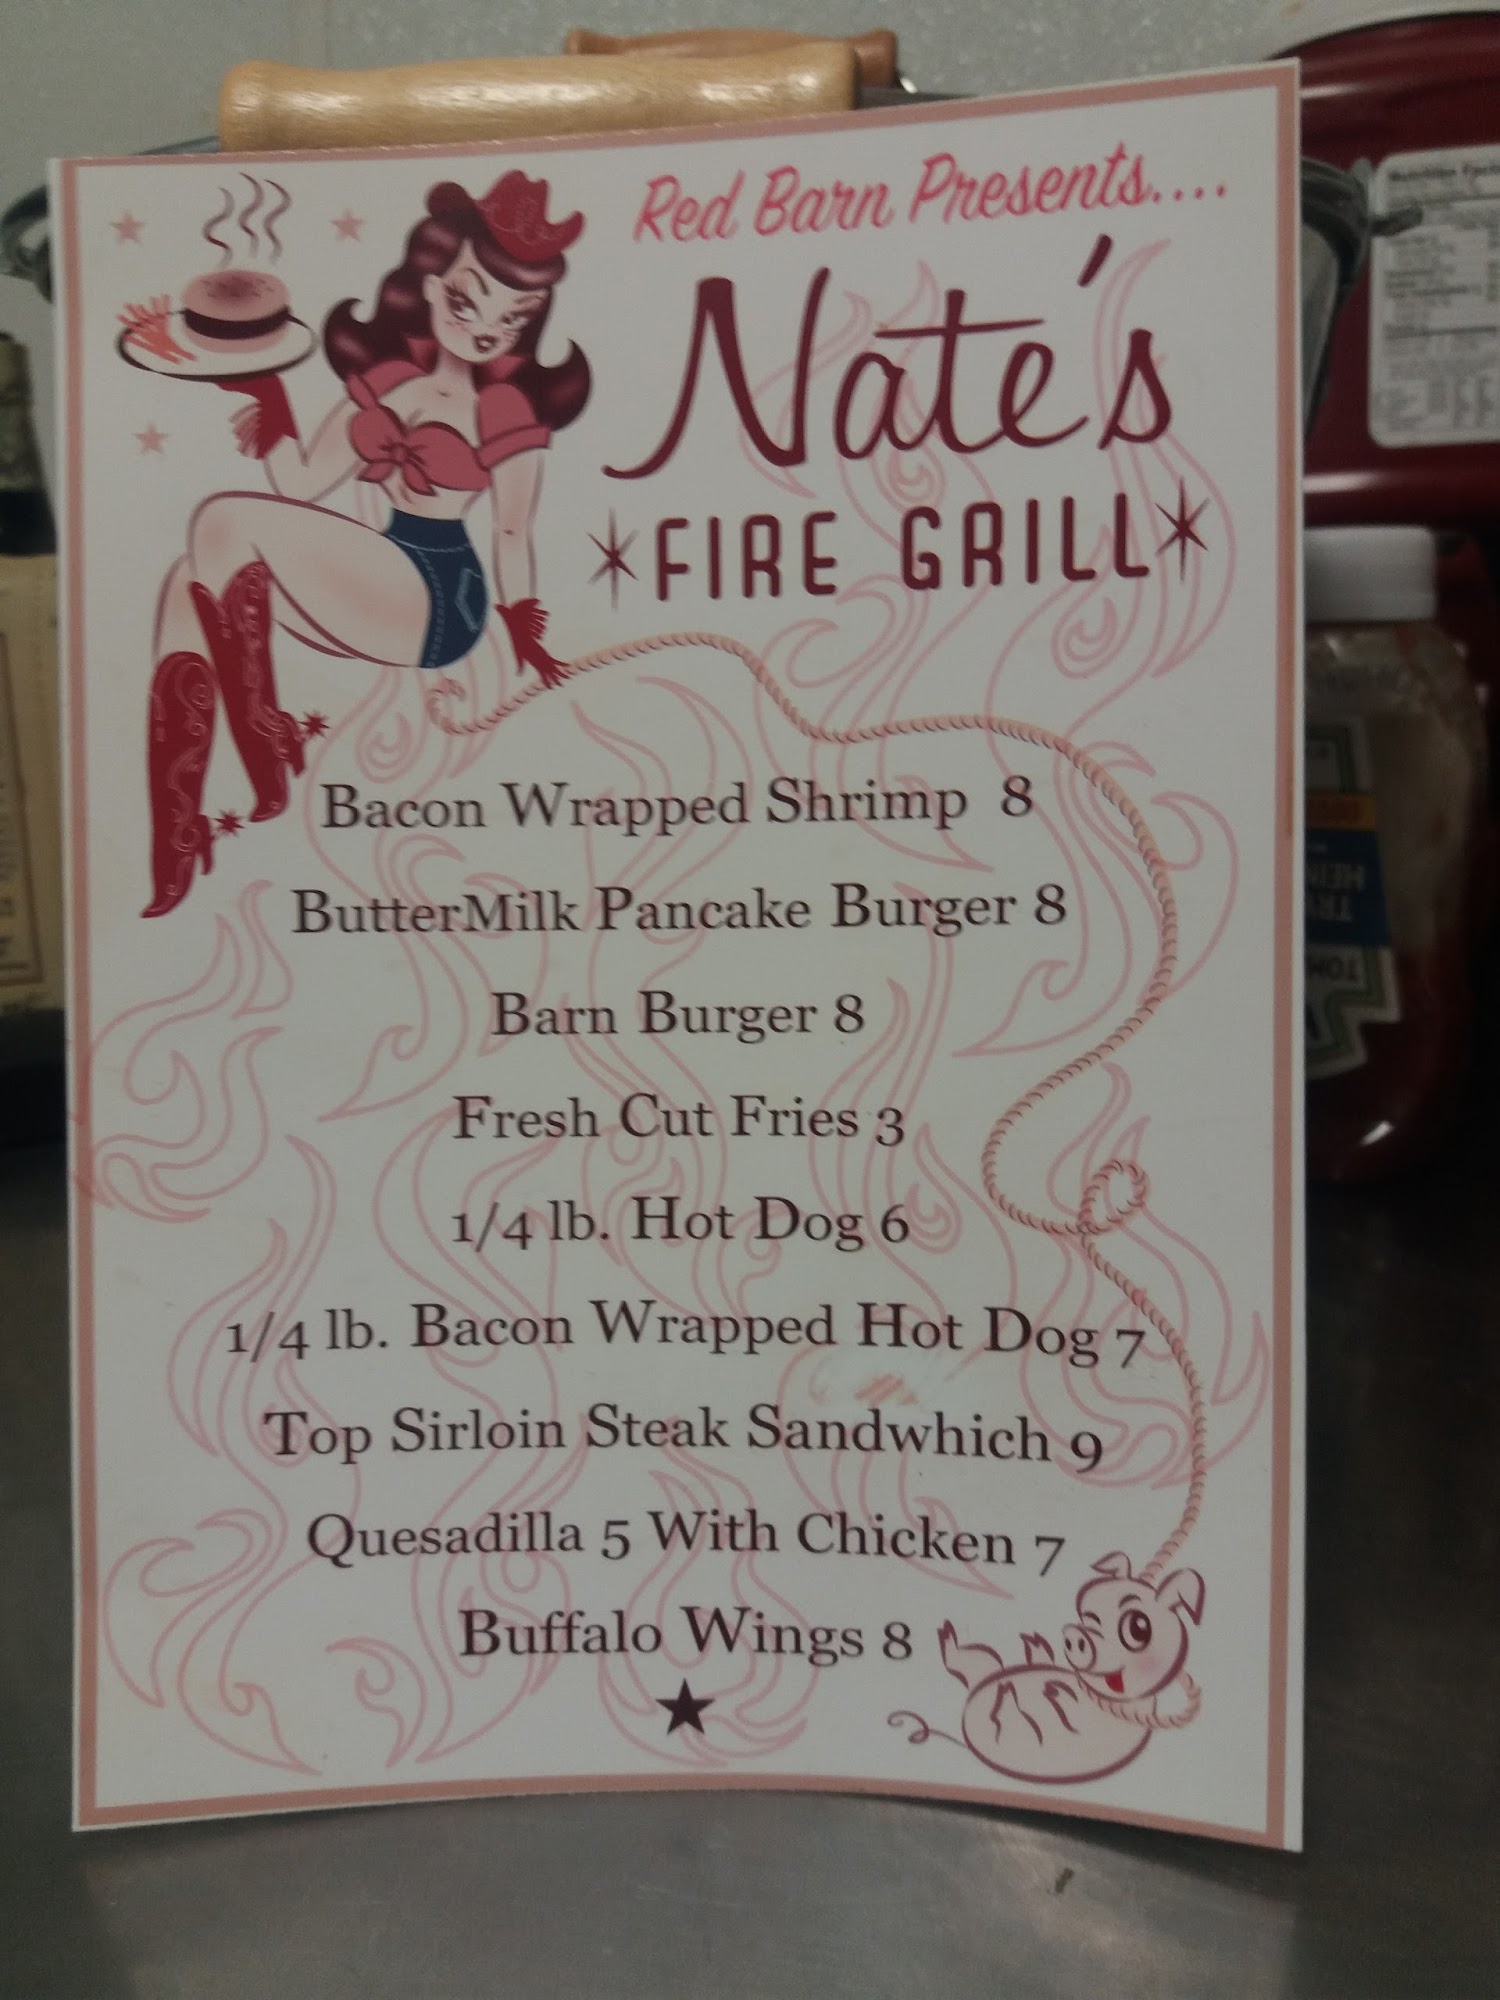 Red Barn Presents....
Nate's
FIRE GRILL
Bacon Wrapped Shrimp 8
ButterMilk Pancake Burger 8
Barn Burger 8
Fresh Cut Fries 3
1/4 lb. Hot Dog 6
1/4 lb. Bacon Wrapped Hot Dog 7
Top Sirloin Steak Sandwhich 9
Quesadilla 5 With Chicken 7
Buffalo Wings 8
Nutrition Facts
HEIN
TOM